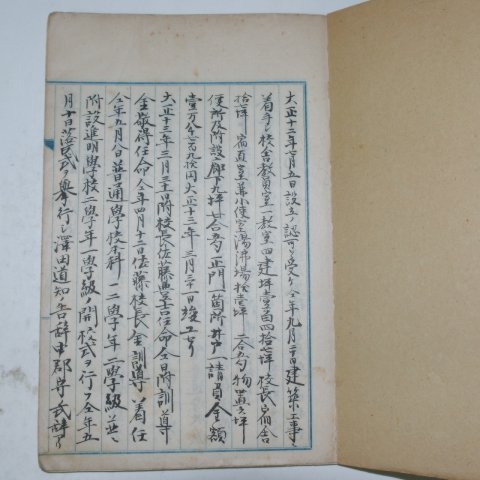 大正十二年七月五日設立ノ認可ヲ受ケ仝年九月二十日建築工事ニ
着手シ校舎教員室一教室四建坪壹百四拾七坪校長宿舎
拾坪 宿直室並小使室湯沸場拾壹坪 二合五勺物置六坪
便所及附設廊下九坪廿五勺正門一箇所井戸 請負金額
壹万八千六百九拾円大正十三年三月三十一日竣工セリ
大正十三年三月三十一日附校長佐藤 任命仝日附訓導
金 得任命仝年四月十二日佐藤校長金訓導着任
仝年九月八日普通學校本科一二學年二學級並ニ
附設進明學校二學年一學級ノ開校式ヲ行フ仝年五
月十日落成式ヲ擧行シ澤田道知事告辞申郡守式辞アリ